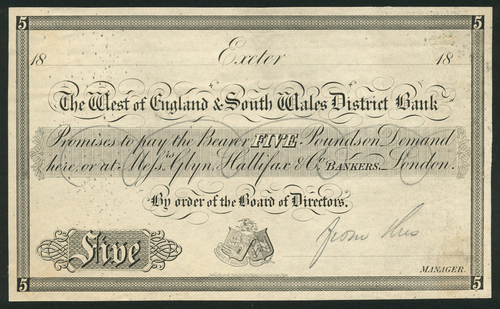 5 5
18 Exeter 18
The West of England & South Wales District Bank
Promises to pay the Bearer FIVE Pounds on Demand
here, or at Mess.rs Glyn, Hallifax & Co. BANKERS, London.
By order of the Board of Directors.
Five
from this
MANAGER.
5 5